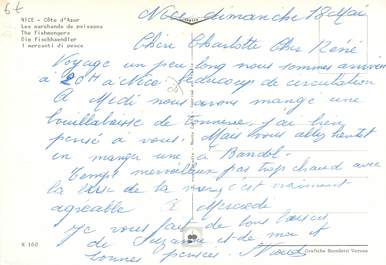 6t
NICE - Côte d'Azur
Les marchands de poissons
The fishmongers
Die Fischhaendler
I mercanti di pesce
Nice dimanche 18 Mai
Chere Charlotte Cher René
Voyage un peu long nous sommes arrivés
à 20H à Nice beaucoup de circulation
A Midi nous avons mangé une
bouillabaisse de tonnerre, j'ai bien
pensé à vous. Mais vous allez bientot
en manger une à Bandol.
Temps merveilleux pas trop chaud avec
la de la mer, c'est vraiment
agreable
Je vous fait de bons baisers
de Suzanne et de moi et
bonnes
K 160
Grafiche Biondetti Verona